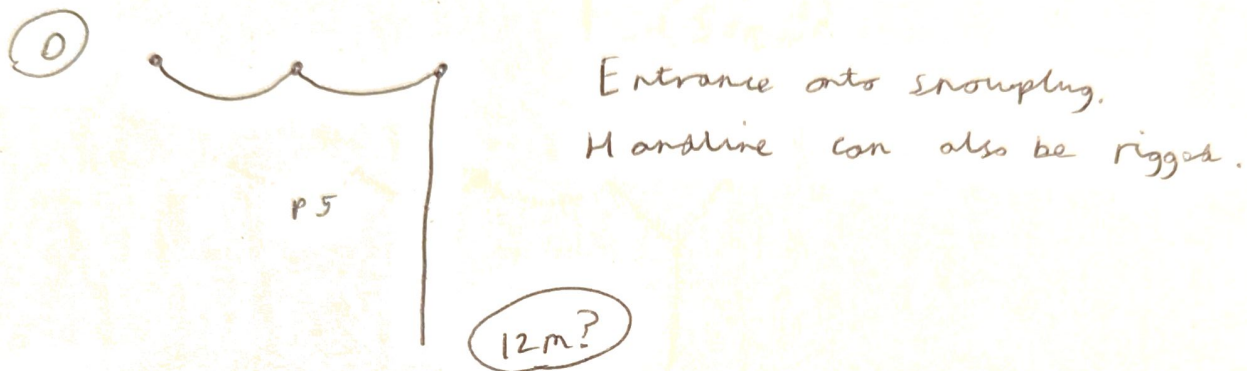 0
Entrance onto snowplug.
Handline can also be rigged.
P5
12m?